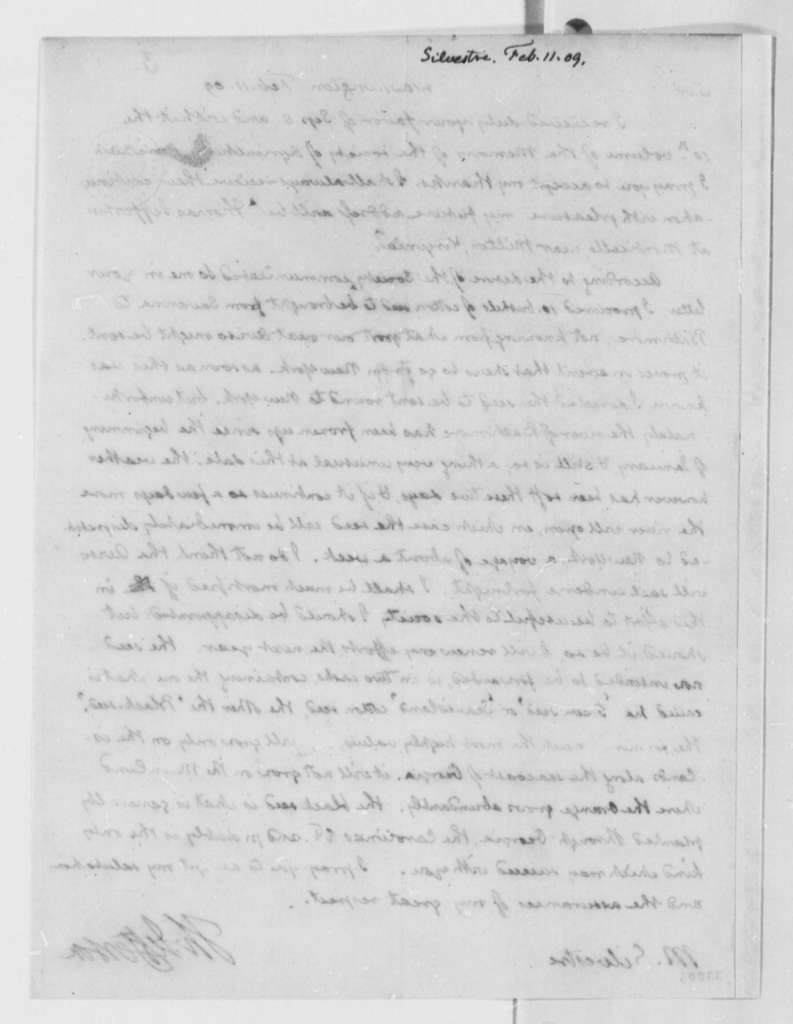 Silvestre. Feb. 11. 09.
Washington Feb. 11. 09
I received duly your favor of Sep. and with it the
volume of the Memoirs of the society of Agriculture
I pray you to accept my thanks. I shall always receive
with pleasure my future address will be "Thomas Jefferson
at Monticello near Milton, Virginia"
According to the desire of the Society communicated to me in your
letter I procured 10 bushels of cotton seed to be brought from Savanna to
Baltimore, not knowing from what port our next aviso might be sent.
it proves in event that she is to go from New York. as soon as this was
known I directed the seed to be sent round to New York, but unfortu-
nately the river of Baltimore has been frozen up since the beginning
of January & still is so, a thing very unusual at this date. the weather
however has been soft these two days & if it continues so a few days more
the river will open, in which case the seed will be immediately dispatch
ed to New York, a voyage of about a week. I do not think the aviso
will sail under a fortnight. I shall be much mortified if in
this effort to be useful to the society I should be disappointed but
should it be so I will renew my efforts the next year. the seed
now intended to be forwarded is in two casks, containing the one what is
called the " or "Sea island" cotton seed, the other the "Black seed".
the former the most highly valued will grow only on the is-
lands along the seacoast of Georgia. it will not grow on the Main land
where the Orange grows abundantly. the black seed is what is generally
planted through Georgia, the Carolinas &c. and probably is the only
kind which may succeed with you. I pray you to accept my salutation
and the assurances of my great respect.
Th: Jefferson
M. Silvestre